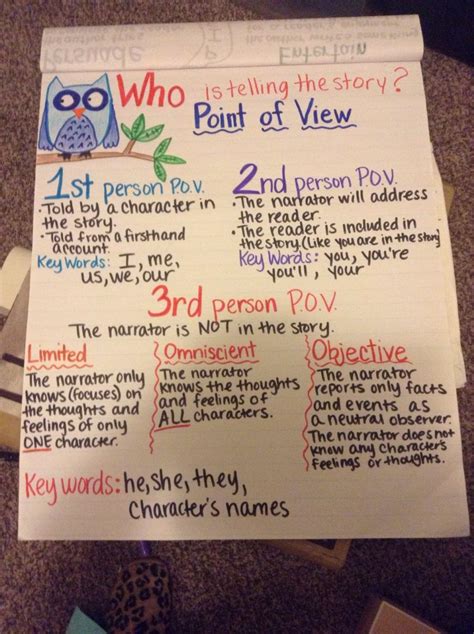 Persuade
P
I
Entertain
Who is telling the story?
Point of View
1st person P.O.V.
• Told by a character in
the story.
• Told from a firsthand
account.
Key Words: I, me,
us, we, our
2nd person P.O.V.
• The narrator will address
the reader.
• The reader is included in
the story. (Like you are in the story)
Key Words: you, you're
you'll, your
3rd person P.O.V.
The narrator is NOT in the story.
Limited
The narrator only
knows (focuses) on
the thoughts and
feelings of only
ONE character.
Omniscient
The narrator
knows the thoughts
and feelings of
ALL characters.
Objective
The narrator
reports only facts
and events as
a neutral observer.
The narrator does not
know any character's
feelings or thoughts.
Key words: he, she, they,
Character's names